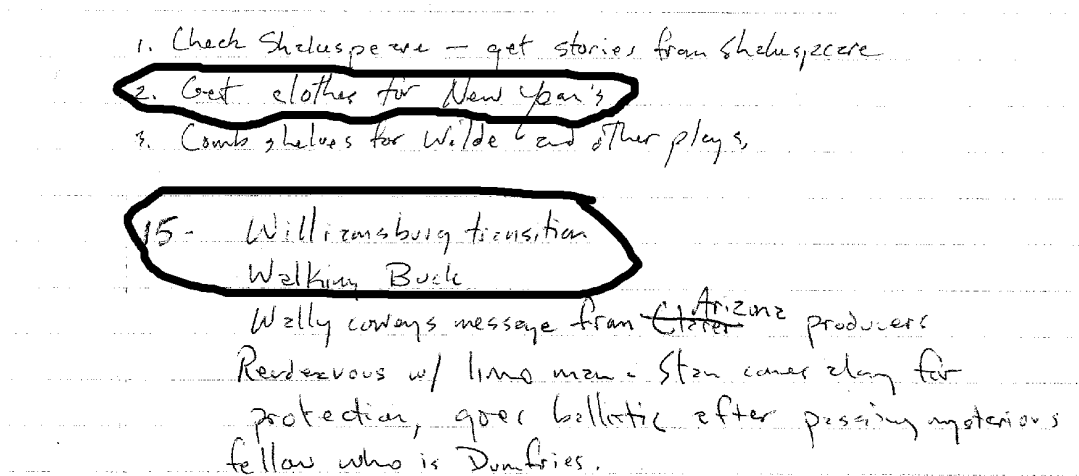 1. Check Shakespeare — get stories from Shakespeare
2. Get clothes for New Year's
3. Comb shelves for Wilde and other plays,
15- Williamsburg transition
Walking Buck
Wally conveys message from Arizona producers
Rendezvous w/ limo man - Stan comes along for
protection, goes ballistic after passing mysterious
fellow who is Dumfries.